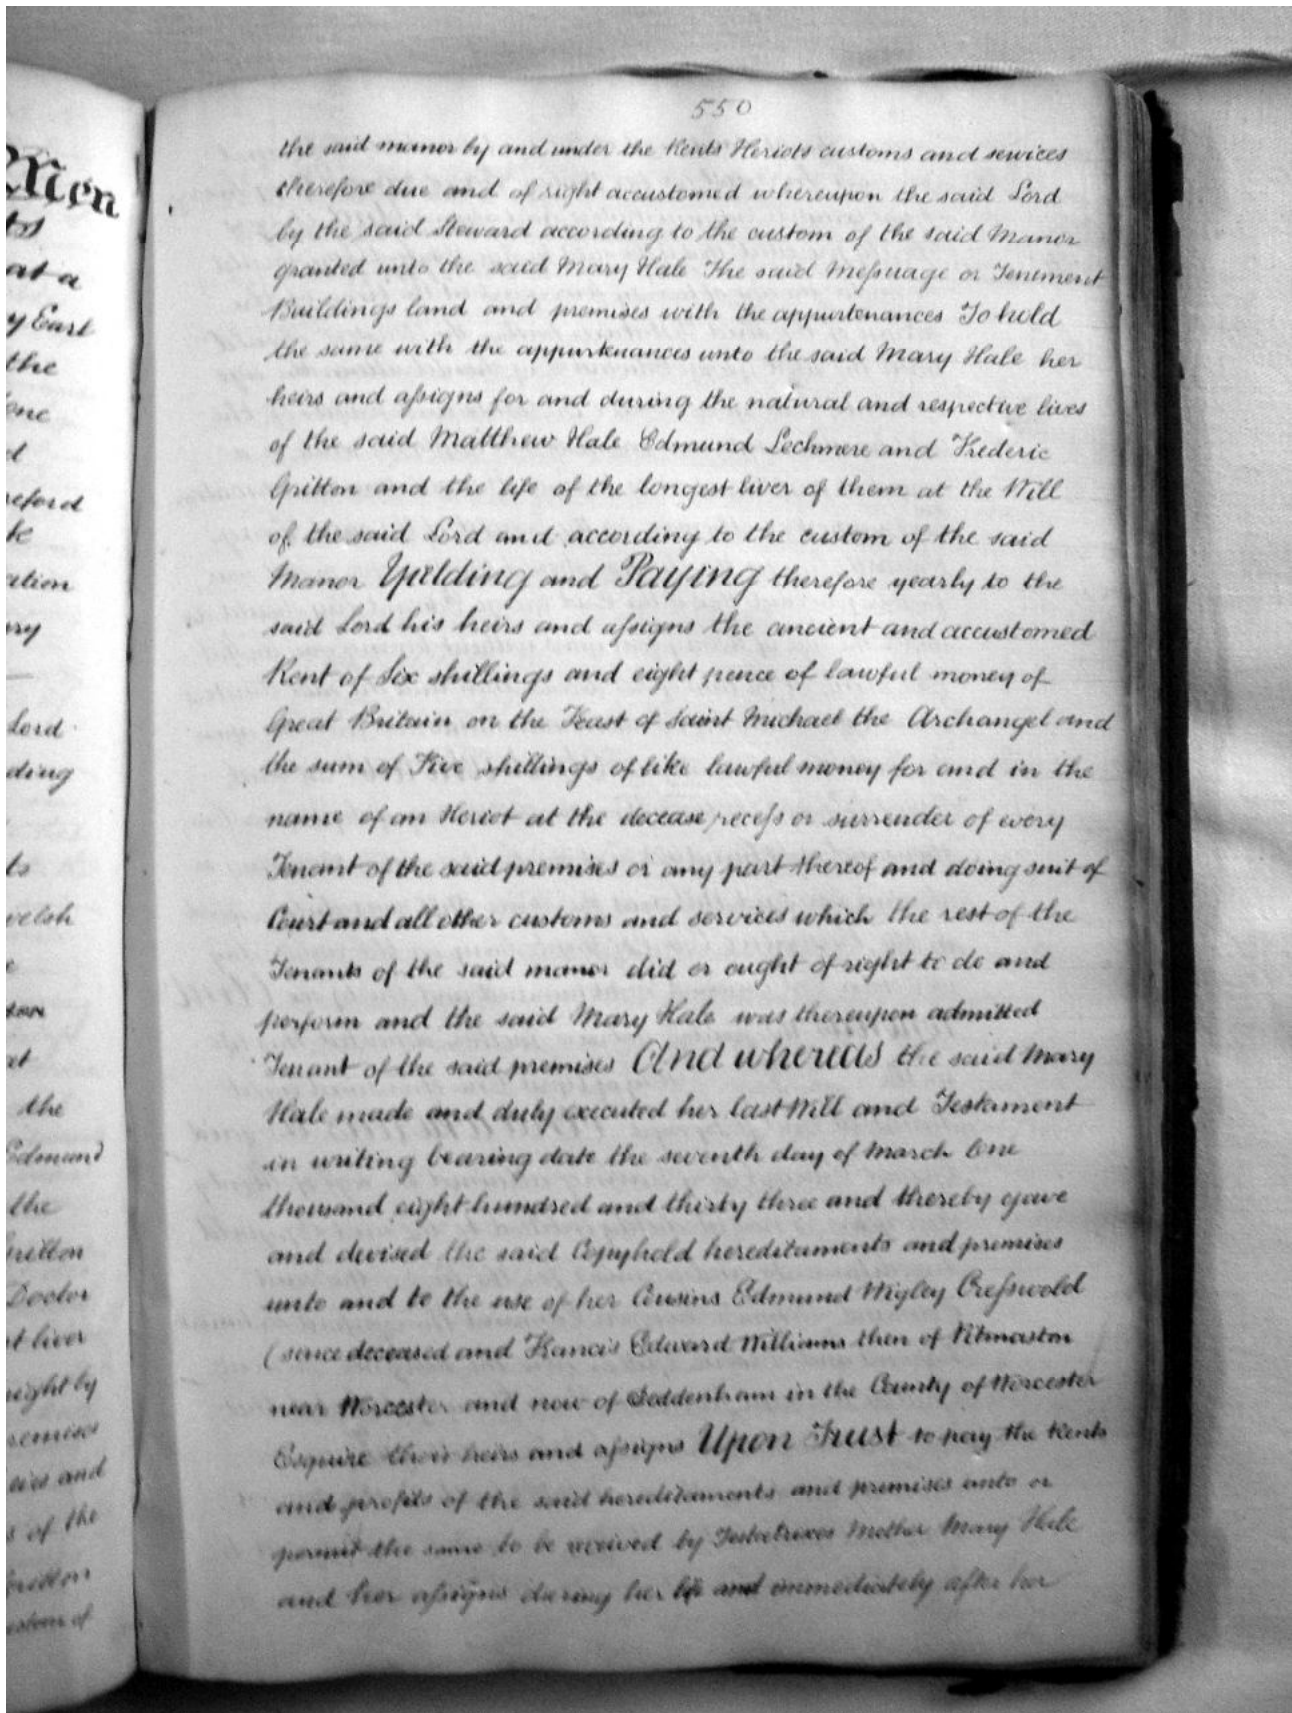 550
the said manor by and under the Rents Heriots customs and services
therefore due and of right accustomed whereupon the said Lord
by the said Steward according to the custom of the said Manor
granted unto the said Mary Hale The said Messuage or Tenement
Buildings land and premises with the appurtenances To hold
the same with the appurtenances unto the said Mary Hale her
heirs and assigns for and during the natural and respective lives
of the said Matthew Hale Edmund Lechmere and Frederic
Gritton and the life of the longest liver of them at the Will
of the said Lord and according to the custom of the said
Manor Yielding and Paying therefore yearly to the
said Lord his heirs and assigns the ancient and accustomed
Rent of Six shillings and eight pence of lawful money of
Great Britain on the Feast of Saint Michael the Archangel and
the sum of Five shillings of like lawful money for and in the
name of an Heriot at the decease recess or surrender of every
Tenant of the said premises or any part thereof and doing suit of
Court and all other customs and services which the rest of the
Tenants of the said manor did or ought of right to do and
perform and the said Mary Hale was thereupon admitted
Tenant of the said premises And whereas the said Mary
Hale made and duly executed her last Will and Testament
in writing bearing date the seventh day of March One
thousand eight hundred and thirty three and thereby gave
and devised the said Copyhold hereditaments and premises
unto and to the use of her Cousins Edmund Wigley Cresswold
(since deceased and Francis Edward Williams then of Pitmaston
near Worcester and now of Doddenham in the County of Worcester
Esquire their heirs and assigns Upon Trust to pay the Rents
and profits of the said hereditaments and premises unto or
permit the same to be received by Testatrixes Mother Mary Hale
and her assigns during her life and immediately after her